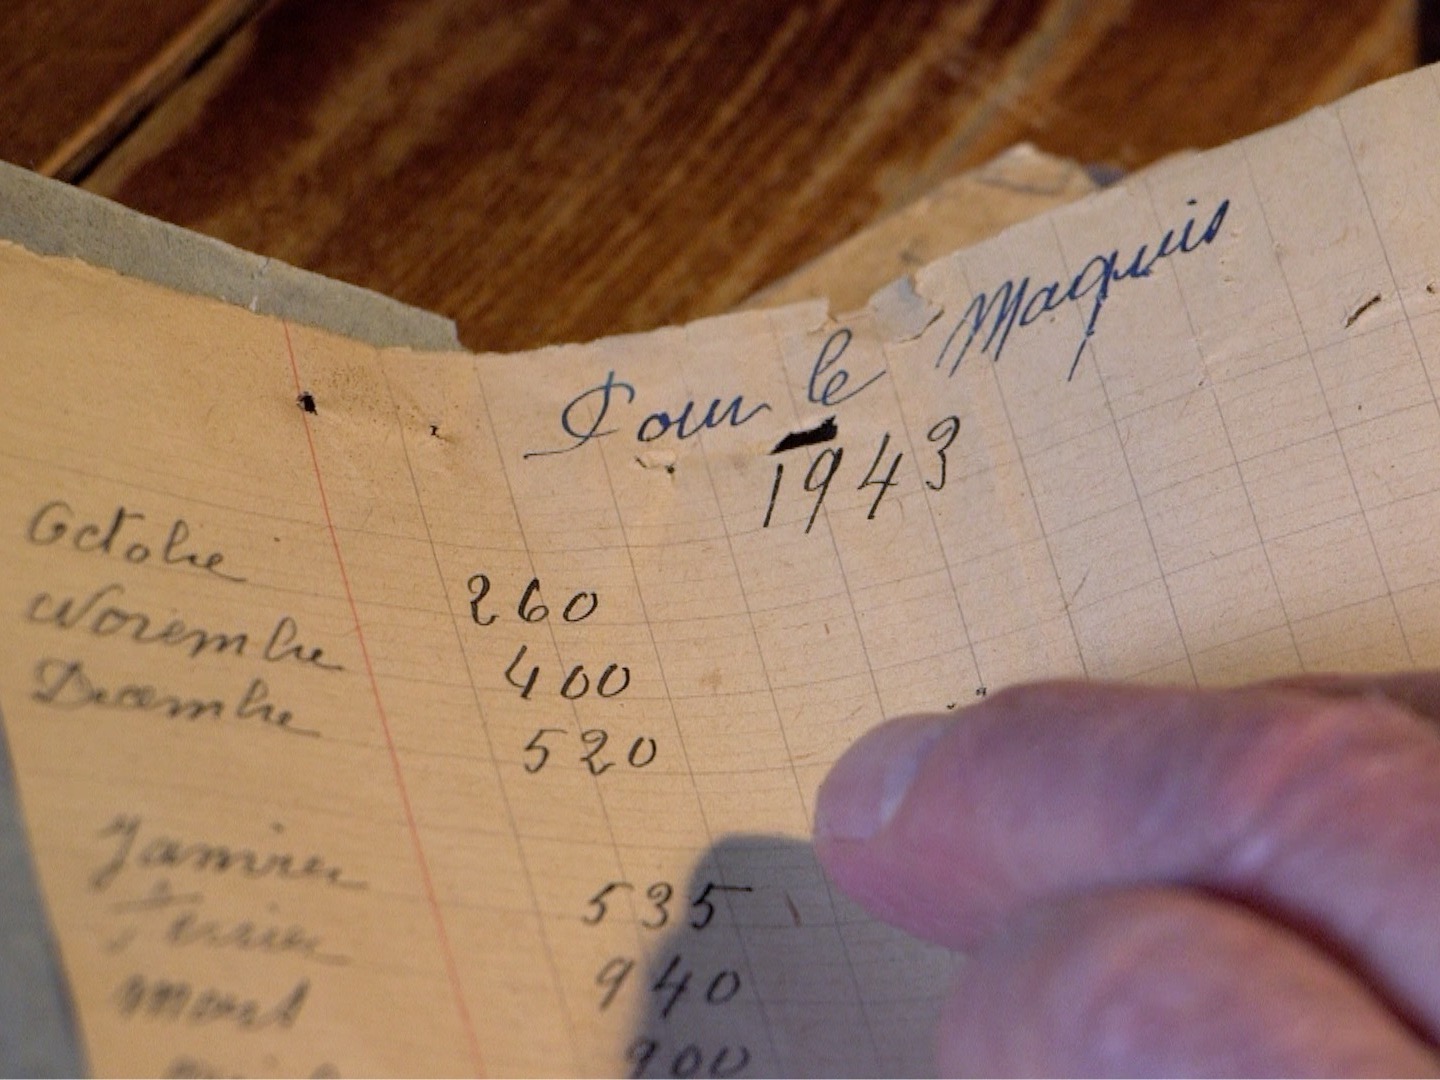 Pour le Maquis
1943
Octobre 260
Novembre 400
Décembre 520
Janvier 535
Février 940
mars
900